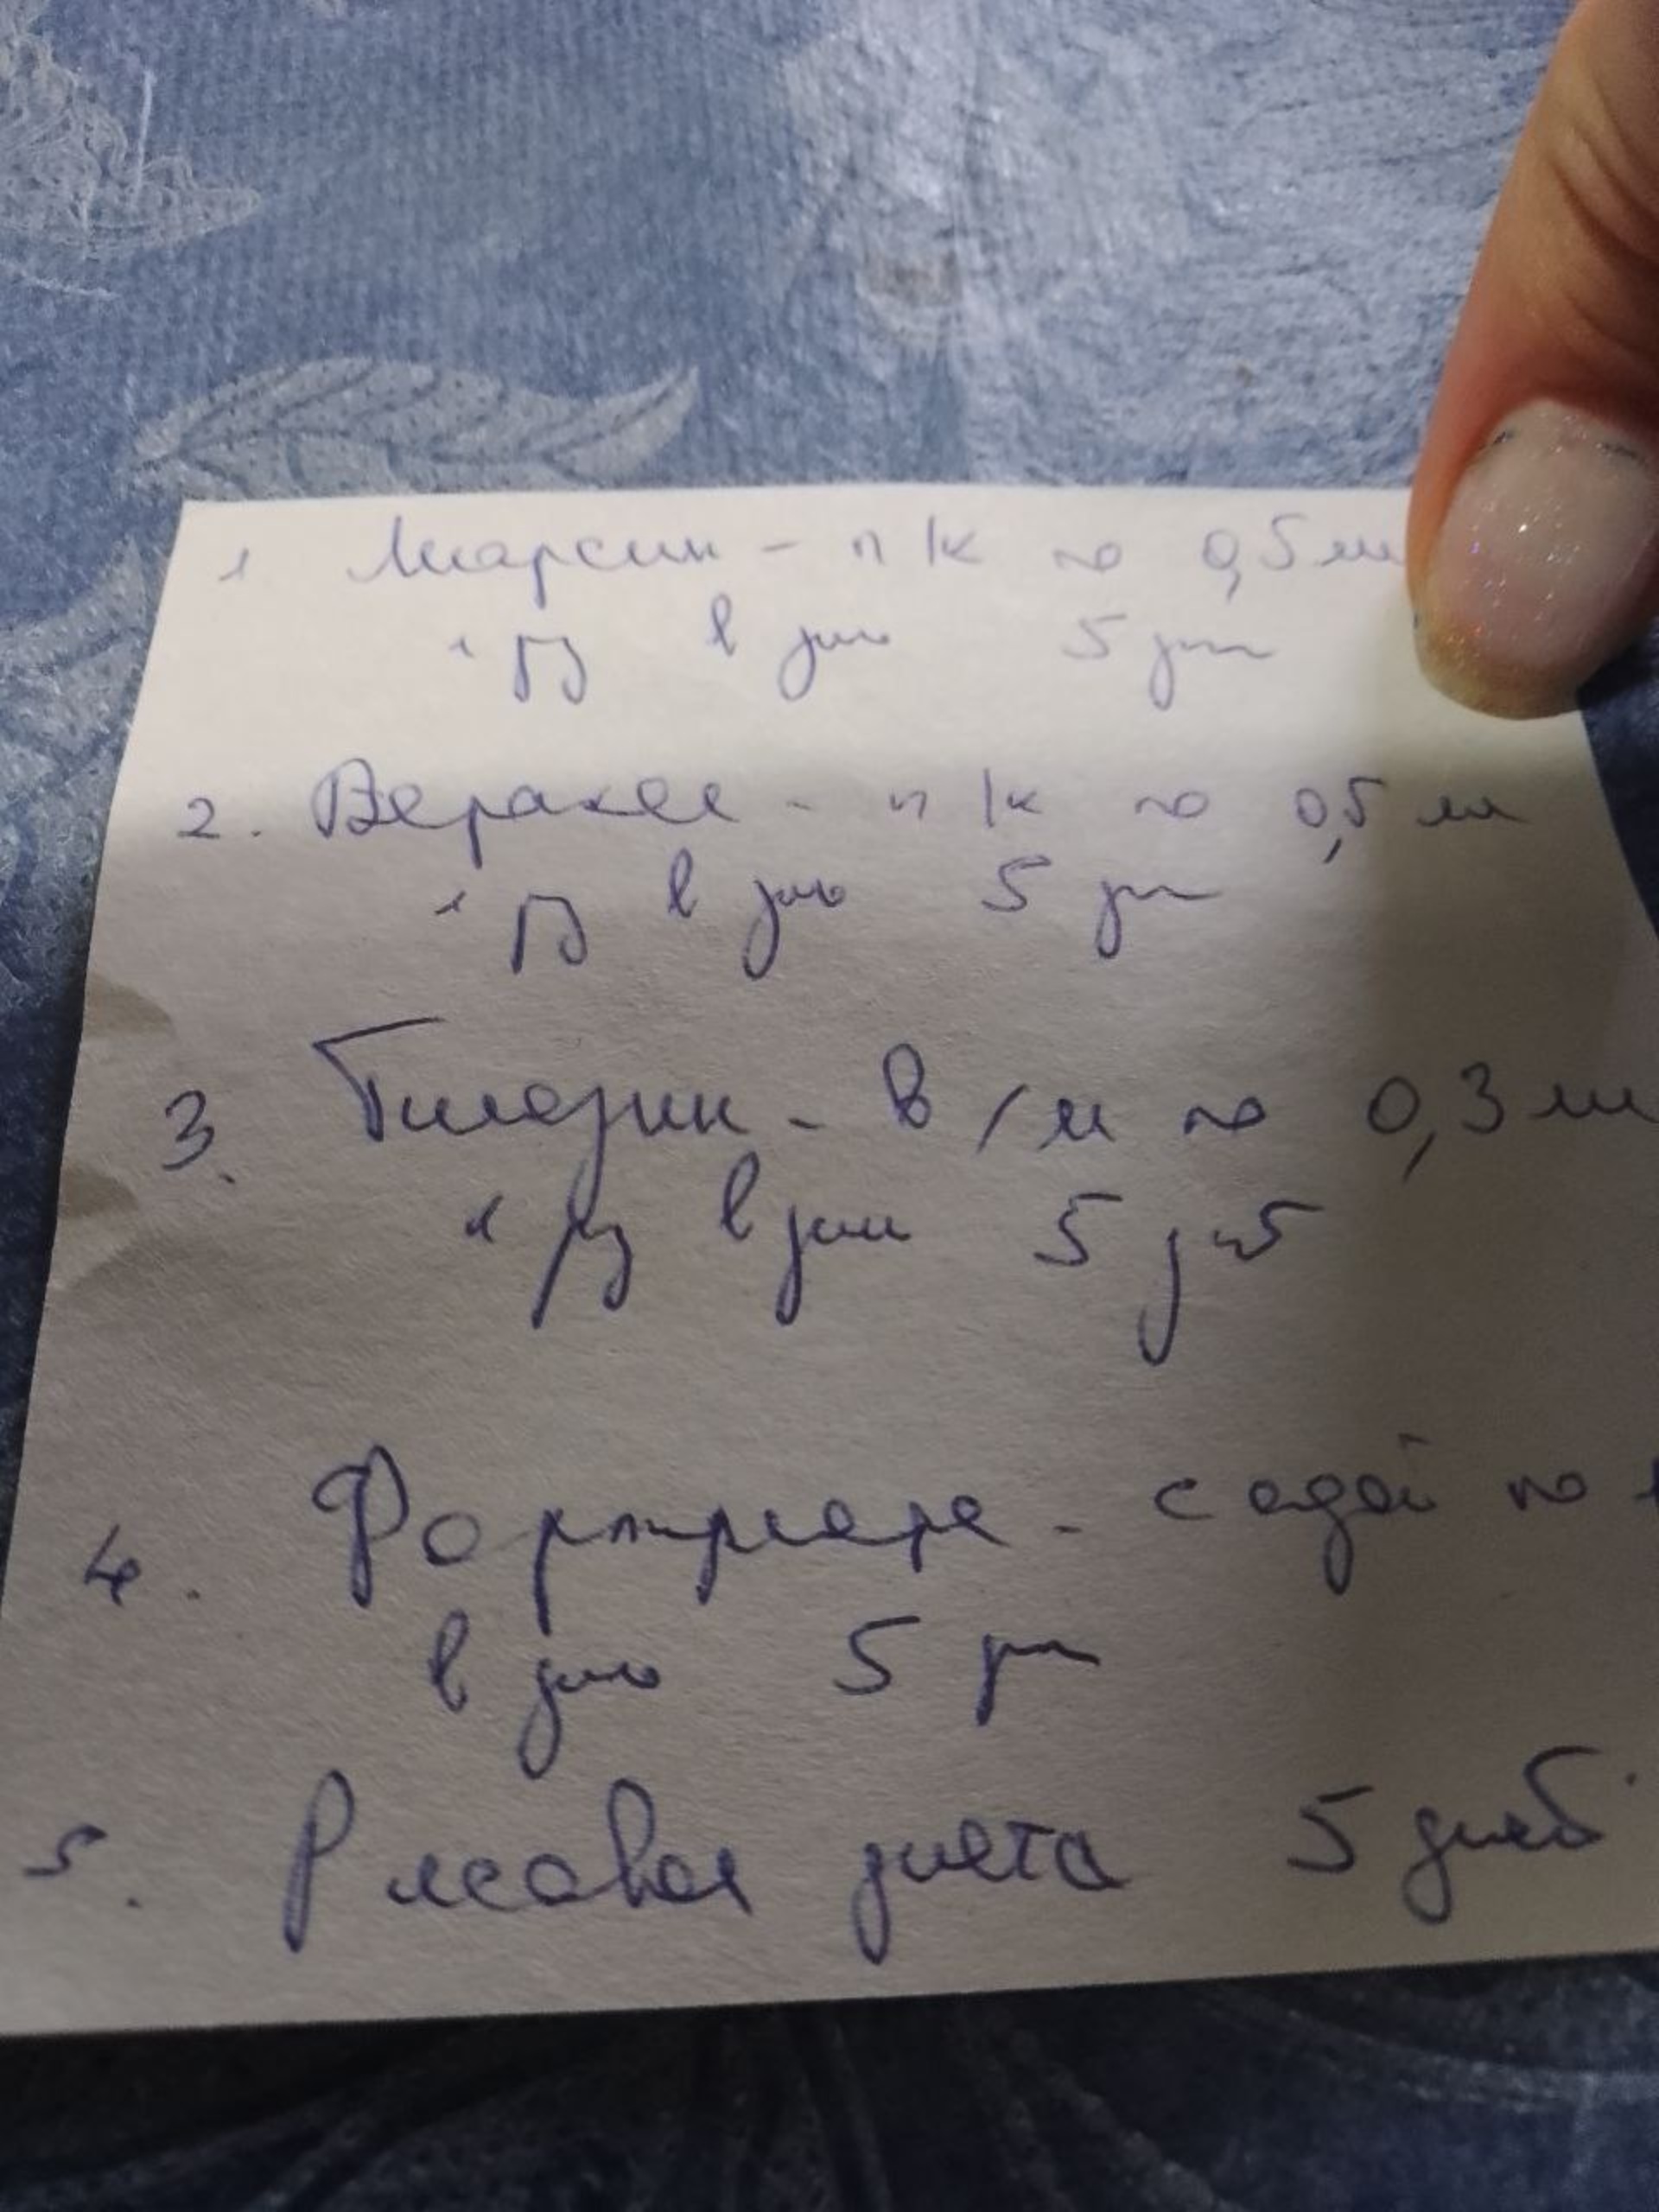 1 Лиарсин - п/к по 0,5 мл
1 рз в день 5 дн
2. Веракол - п/к по 0,5 мл
1 рз в день 5 дн
3. Тилозин - в/м по 0,3 мл
1 рз в день 5 дней
4. Фортифлора - с едой по 1
в день 5 дн
5. Рисовая диета 5 дней.